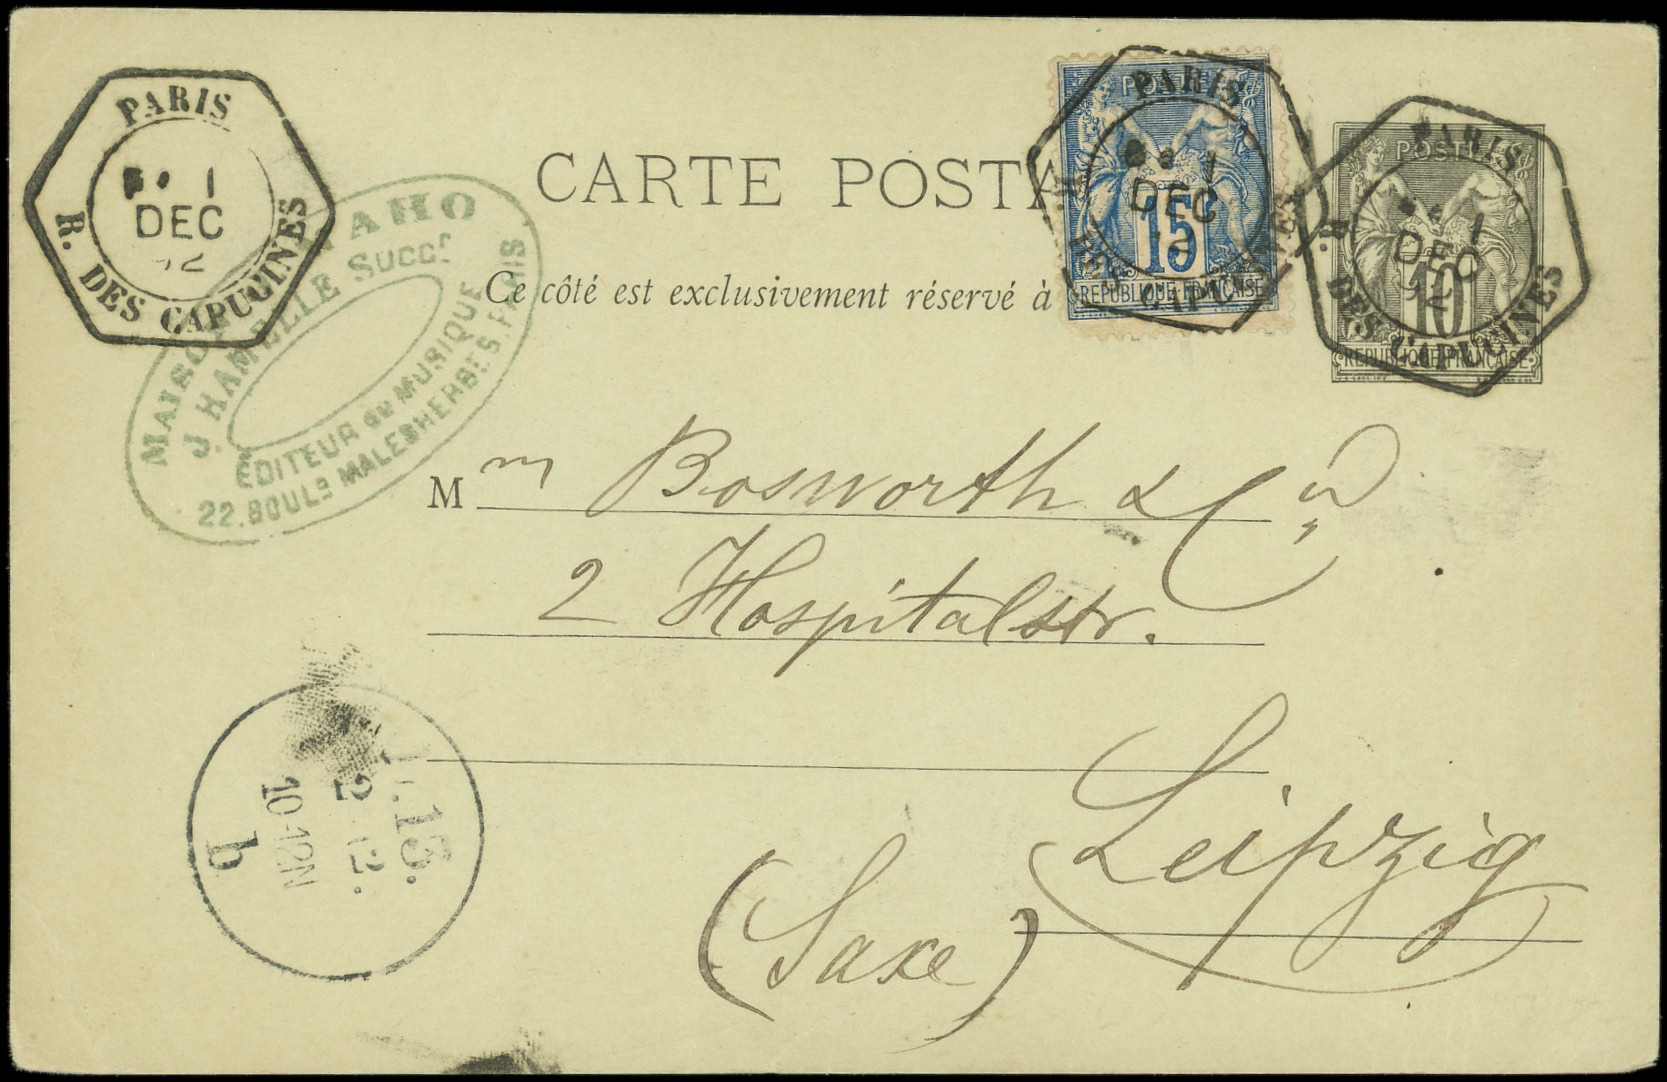 PARIS
1
DEC
92
R. DES CAPUCINES
MAISON MAHO
J HAMELLE SUCCr
EDITEUR DE MUSIQUE
22.BOULd MALESHERBES.PARIS
CARTE POSTA
Ce côté est exclusivement réservé à
POSTE
15
REPUBLIQUE FRANCAISE
PARIS
1
DEC
R. DES CAPUCINES
POSTE
10
REPUBLIQUE FRANCAISE
PARIS
1
DEC
92
R. DES CAPUCINES
Mm Bosworth & Co
2 Hospitalstr.
Leipzig
(Saxe)
L. 13.
2 12.
10-12N
b